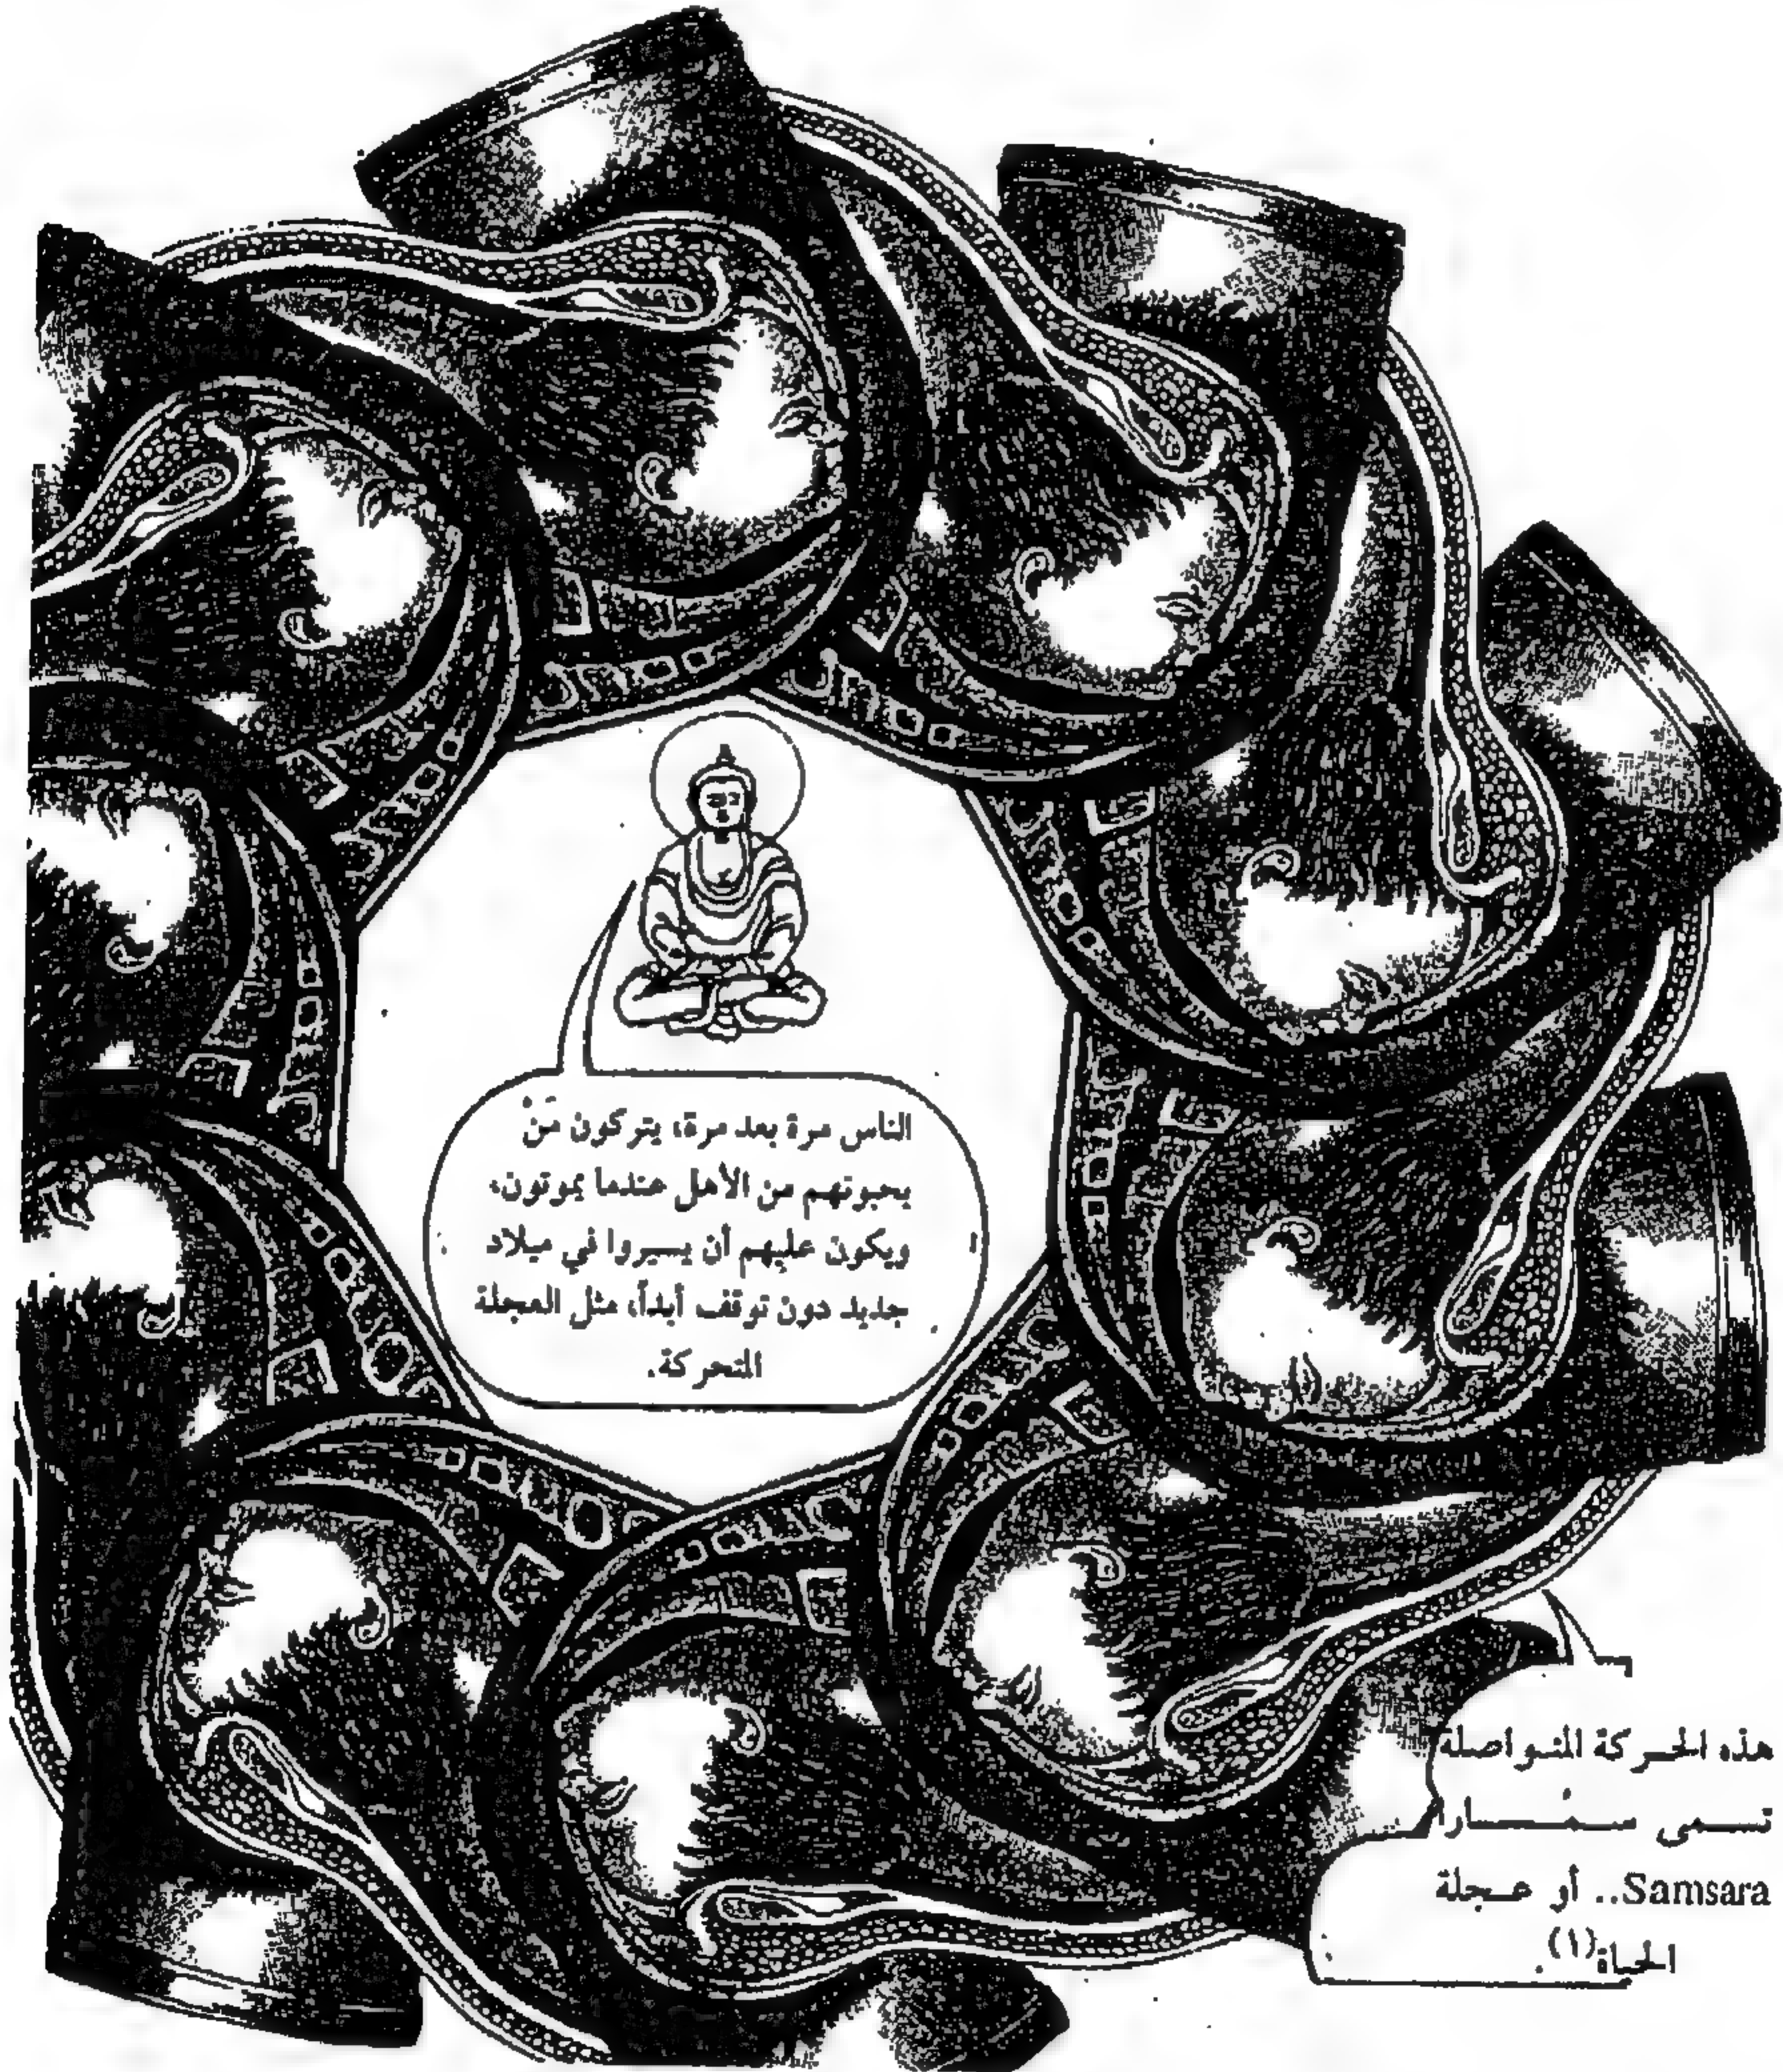 الناس مرة بعد مرة، يتركون مَنْ
يحبونهم من الأهل عندما يموتون،
ويكون عليهم أن يسيروا في ميلاد
جديد دون توقف أبداً، مثل العجلة
المتحركة.
هذه الحركة المتواصلة
تسمى سمسارا
Samsara.. أو عجلة
الحياة(١).